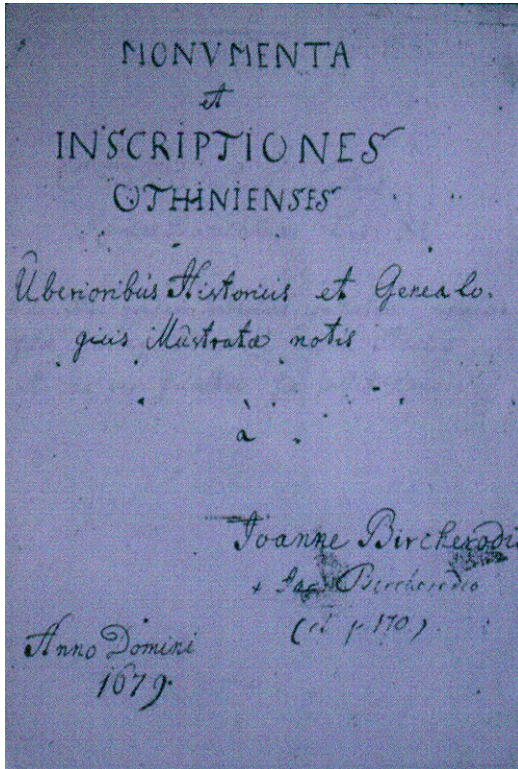 MONVMENTA
et
INSCRIPTIONES
OTHINIENSES
Uberioribus Historicis et Genealo-
gicis illustratæ notis
à
Joanne Bircherodio
+ Jac. Bircherodio
p. 170)
Anno Domini
1679.